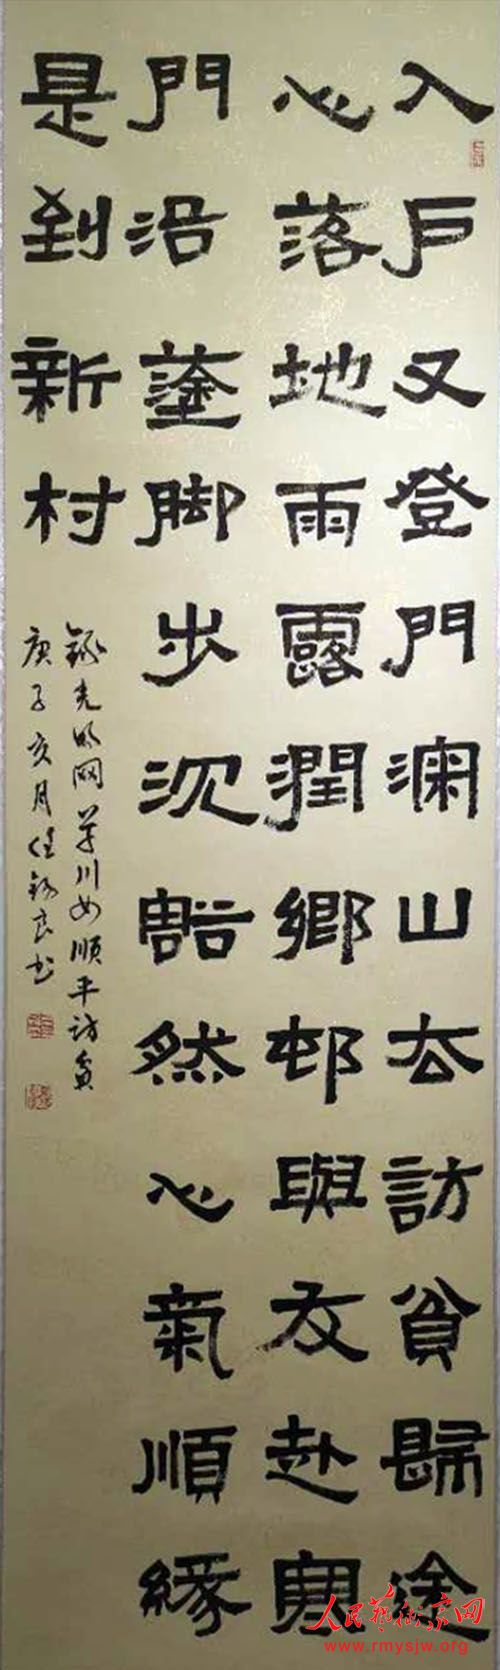 入戶又登門瀾山去訪貧歸途
心落地雨露潤鄉邨與友赴寒
門沿塗脚步沉豁然心氣順緣
是到新村
錄光明网川順平訪貧
庚子亥月任錫良书
人民藝術家网
www.rmysjw.org